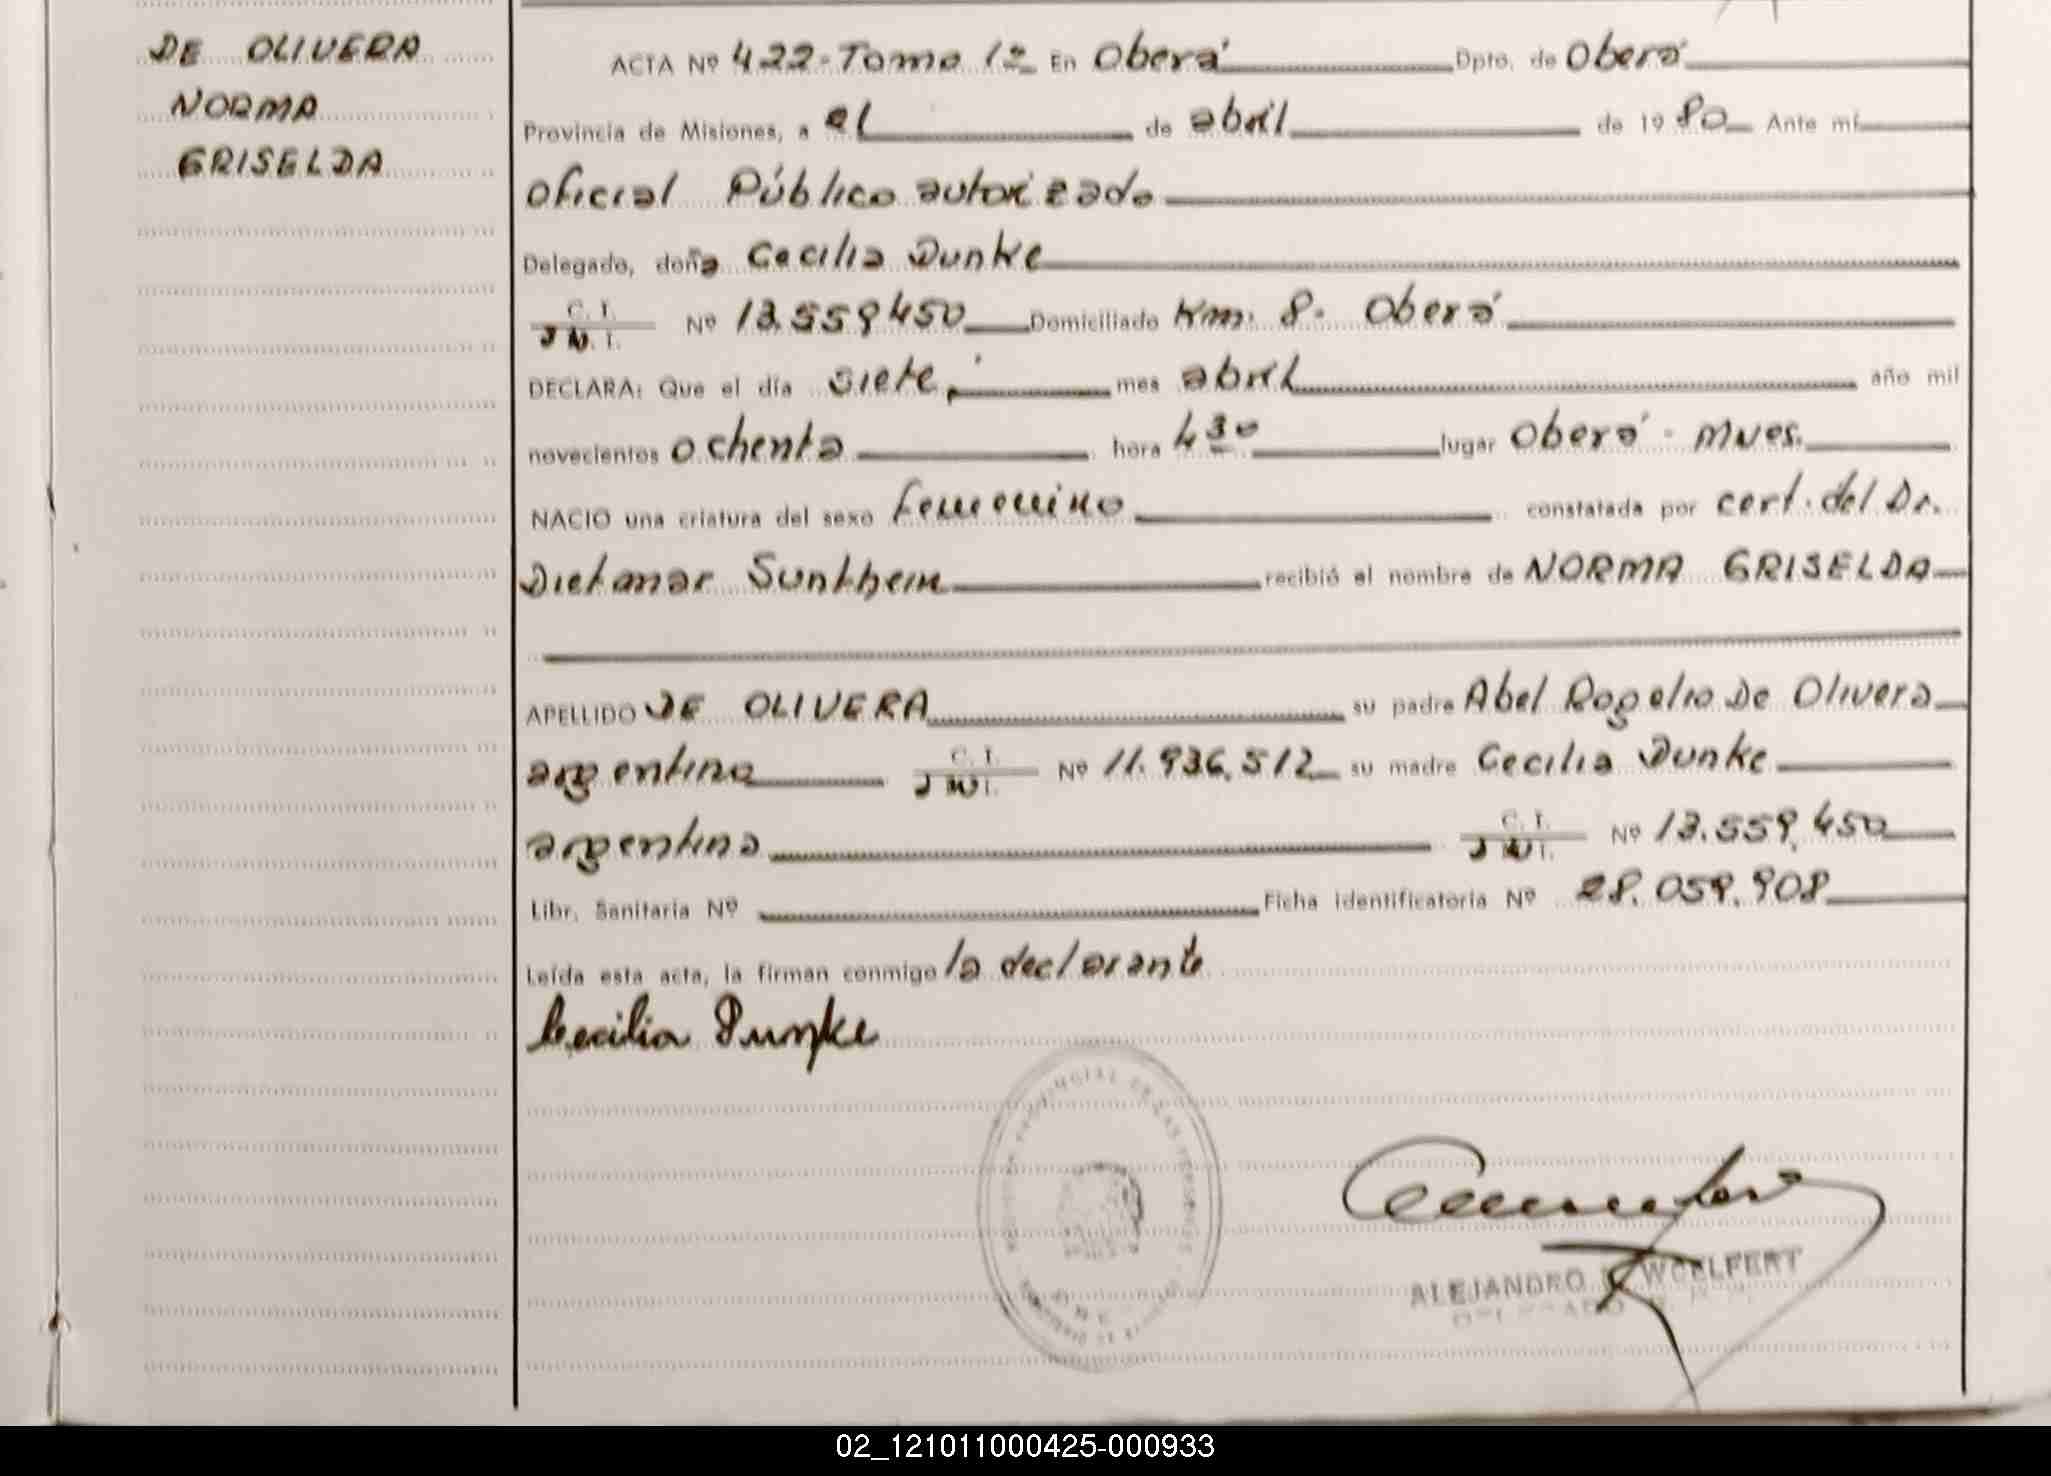 DE OLIVERA
NORMA
GRISELDA
ACTA Nº 422-Tomo 1º En Oberá Dpto. de Oberá
Provincia de Misiones, a el de abril de 1980 Ante mí
Oficial Público autorizado
Delegado, doña Cecilia Dunke
C. I.
Nº 13.559.450 Domiciliado Km. 8. Oberá
DECLARA: Que el día siete, mes abril año mil
novecientos ochenta hora 4 30 lugar Oberá - Mnes.
NACIO una criatura del sexo femenino constatada por cert. del Dr.
Dietmar Sunkheim recibió el nombre de NORMA GRISELDA
APELLIDO DE OLIVERA su padre Abel Rogelio De Olivera
argentino C. I. Nº 11.936.512 su madre Cecilia Dunke
argentina C. I. Nº 13.559.450
Libr. Sanitaria Nº Ficha identificatoria Nº 28.059.908
Leída esta acta, la firman conmigo la declarante
Cecilia Dunke
ALEJANDRO WOELFERT
DELEGADO
02_121011000425-000933